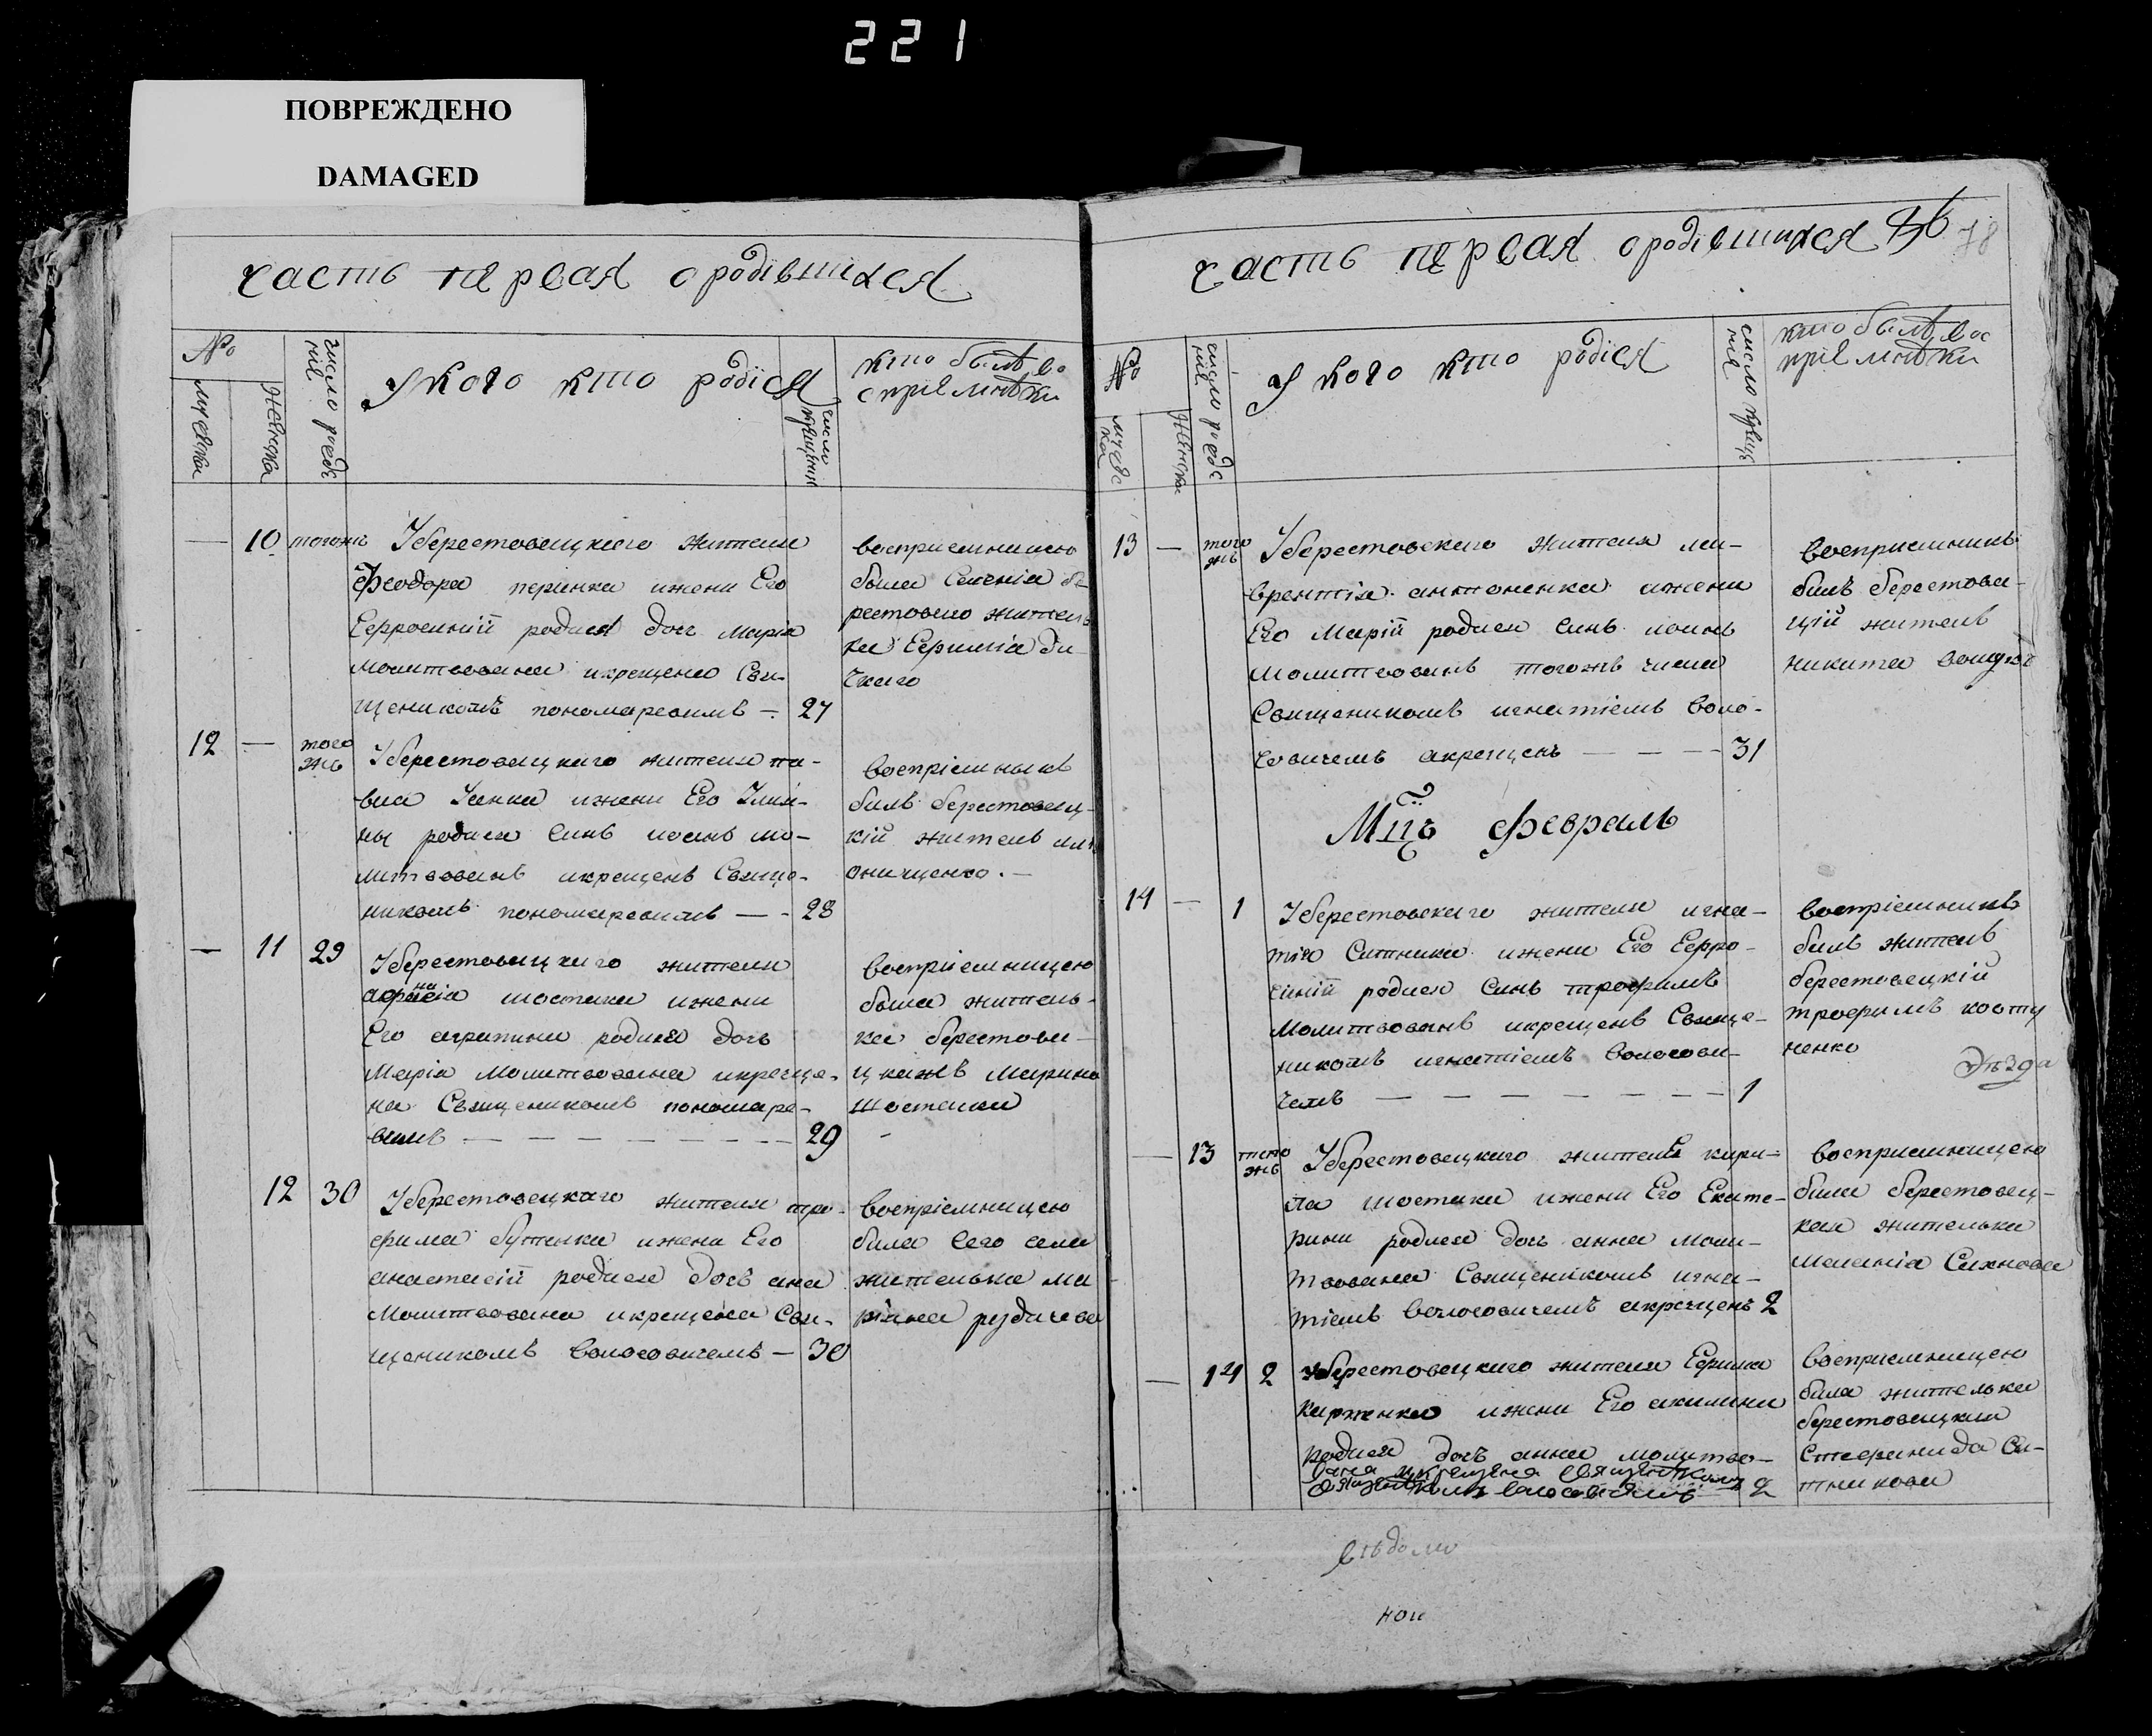 221
ПОВРЕЖДЕНО
DAMAGED
часть первая ородівшихся
№
мужеска
женска
число рожде
нія
У кого кто родїся
число
крещения
кто былъ во
спріемнѣки
— 10 тогожъ
Уберестовецкого жителя
Феодора перінка ижени Его
Еефросиній родися дочь Марія
молитвована икрещена Свя-
щеникомъ пономаревимъ — 27
восприемницею
была Селенія бе-
рестовего житель
ка Ефимія ди-
чкаго
12 — того
жъ
Уберестовецкаго жителя па-
вла Усенка ижени Его Улия-
ны родися Синъ иосинъ мо-
литвованъ икрещенъ Свяще-
никомъ пономаревимъ — - 28
воспріемникъ
билъ берестовец-
кій житель
онищенко. —
— 11 29
Уберестовецкаго жителя
афанасія шостака ижени
Его агрипини родися дочь
Марія Молитвована икреще-
на Священикомъ пономаре-
вимъ — — — — — — — 29
воспріемницею
была житель-
ка берестове-
цкажъ Марина
Шостачка
12 30
Уберестовецкаго жителя тро-
фима бутенка ижени Его
анастасій родися Дочь ана
Молитвована икрещена Свя-
щеникомъ Волосовичемъ — 30
воспріемницею
била Сего села
жителька ма
ріяна рудичева
часть первая ородівшихся
78
№
мужес
ка
женска
число рожде
нія
У кого кто родїся
число крещ
нія
кто былъ вос
пріемнѣки
13 — того
жъ
Уберестовскаго жителя ла-
врентія антоненка ижени
Его Марій родися Синъ иоинъ
Молитвованъ тогожъ числа
Священикомъ игнатіемъ Воло-
совичемъ акрещенъ — — — 31
восприемникъ
билъ берестове-
цій житель
никита
Мцъ Февраль
14 — 1
Уберестовскаго жителя игна-
тія Ситника ижени Его Еефро-
синій родися Синъ трофимъ
Молитвованъ икрещенъ Свяще-
никомъ игнатіемъ Волосови-
чемъ — — — — — — — 1
воспріемникъ
билъ житель
берестовецкій
трофимъ косту
ненко
уѣзда
— 13 того
жъ
Уберестовецкаго жителя кири-
ла шостака ижени Его Екате-
рини родися дочь анна моли-
твована Священікомъ игна-
тіемъ Волосовичемъ акрещенъ 2
восприемницею
била берестовец-
кая жителька
Меланія Сахнова
— 14 2
Уберестовецкаго жителя Ефима
Карженка ижени Его акилини
родися дочь анна молитво-
вана икрещена священікомъ
священікомъ волосовічемъ 2
восприемницею
била жителька
берестовецкая
Стефанида Си-
тникова
вѣдомо